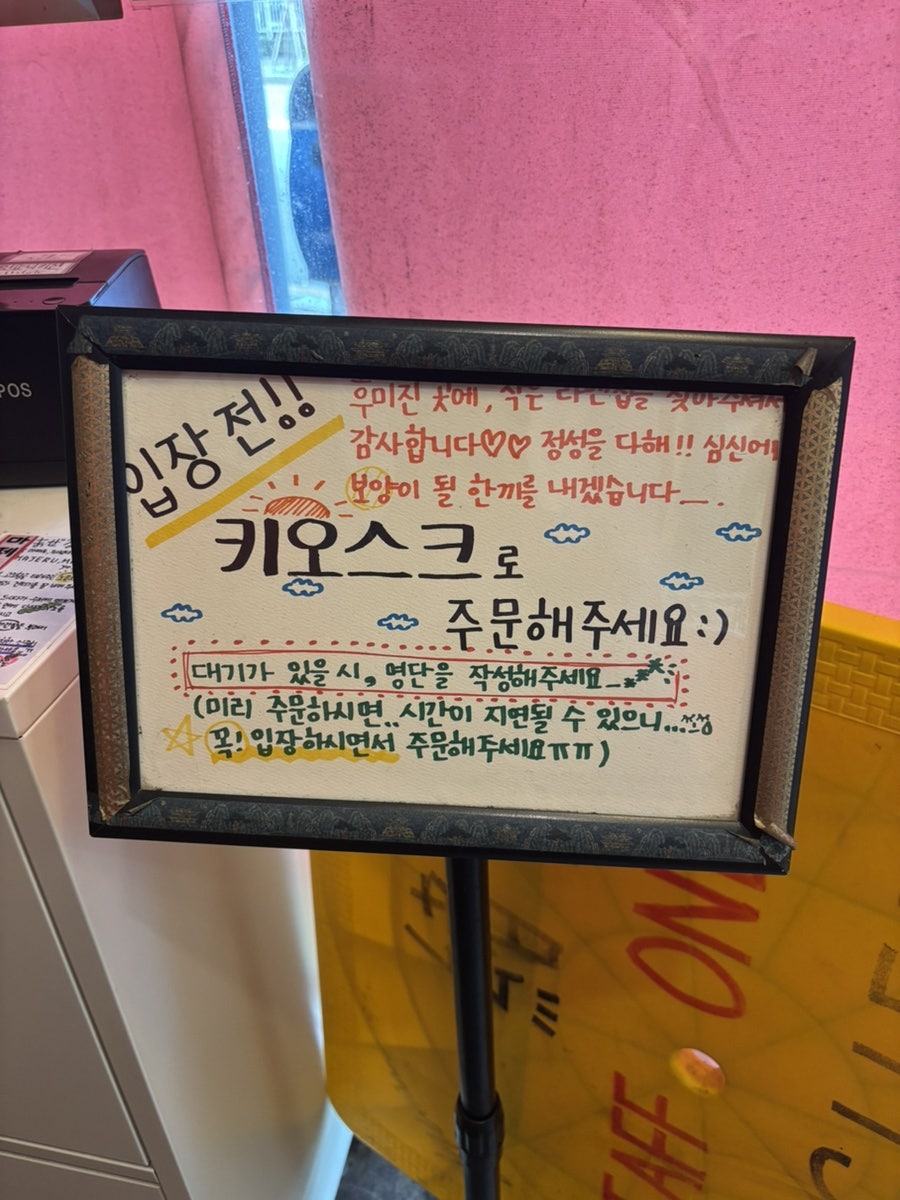 입장 전!!
후미진 곳에, 작은 라멘집을 찾아주셔서
감사합니다♡♡ 정성을 다해!! 심신에
보양이 될 한끼를 내겠습니다__.
키오스크로
주문해주세요:)
대기가 있을 시, 명단을 작성해주세요_
(미리 주문하시면.. 시간이 지연될 수 있으니...
꼭! 입장하시면서 주문해주세요ㅠㅠ)
POS
마제
STAFF ONLY